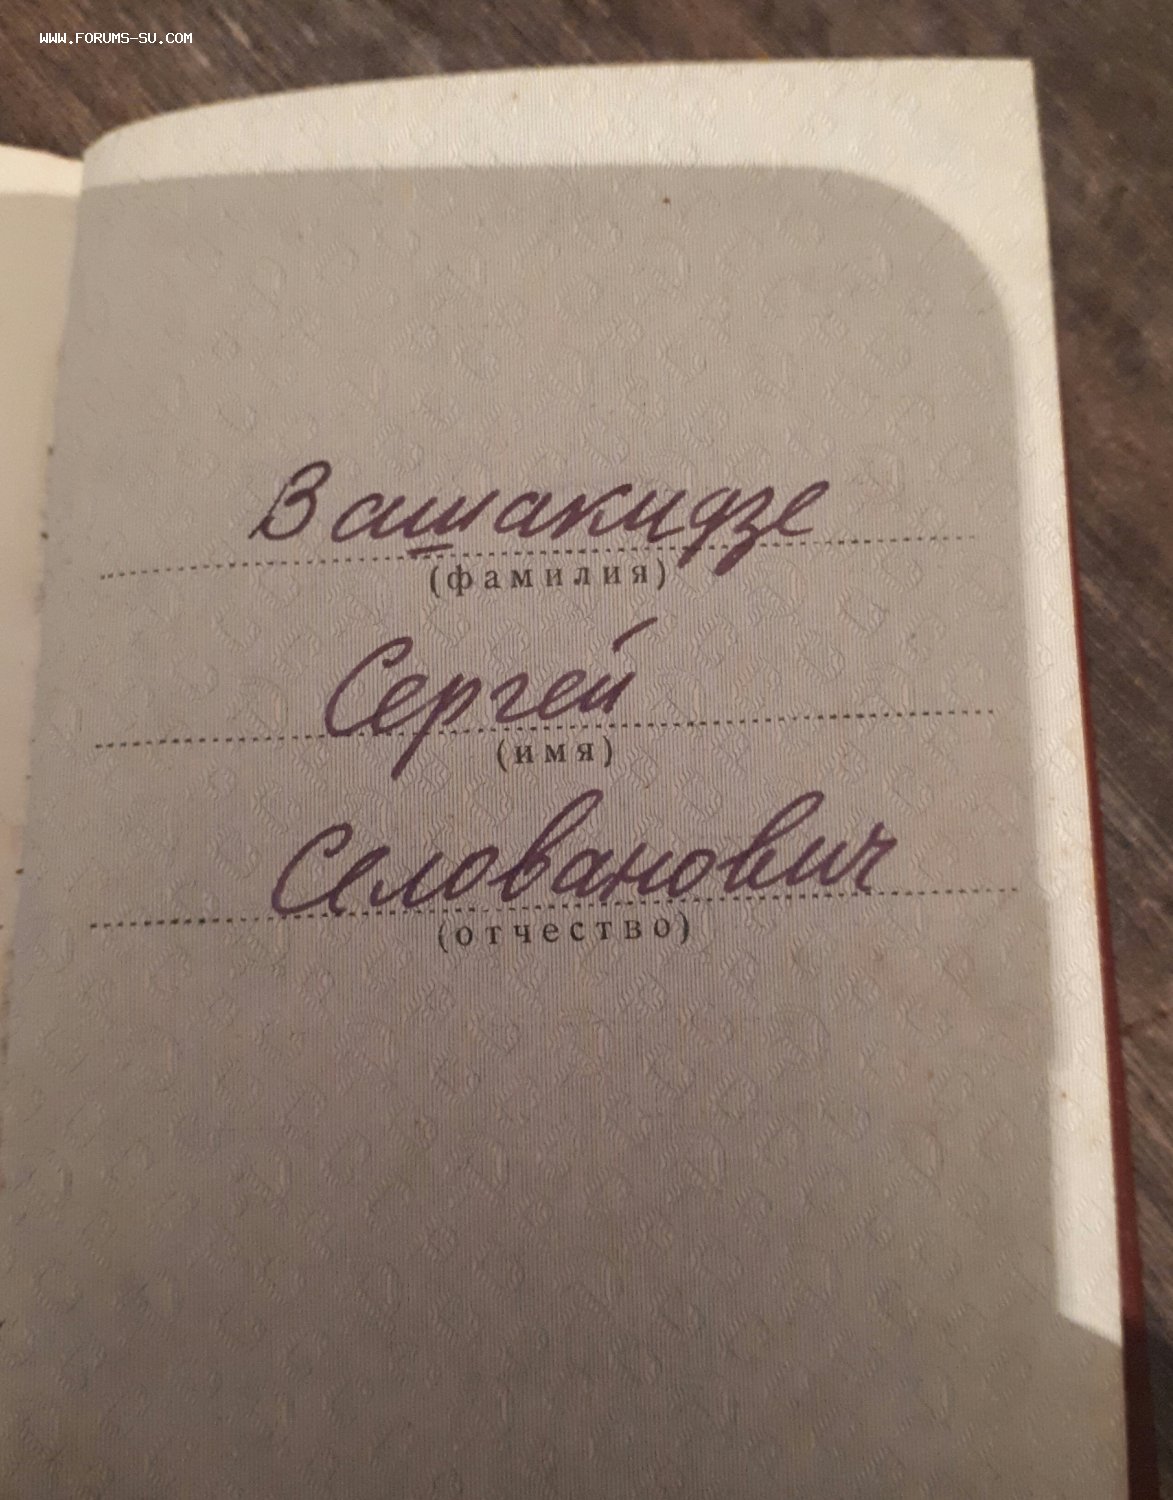 WWW.FORUMS-SU.COM
Вашакидзе
(фамилия)
Сергей
(имя)
Селованович
(отчество)